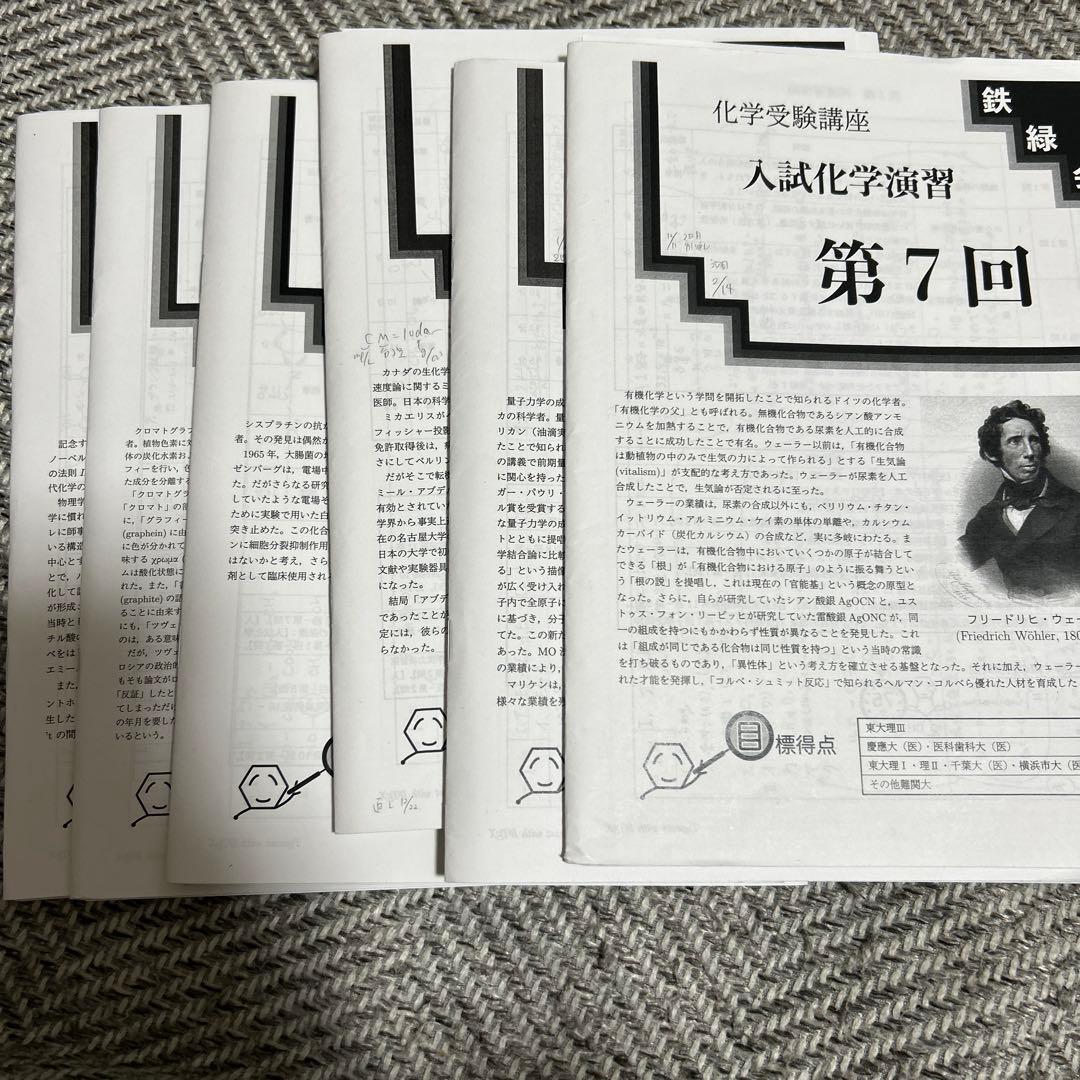 鉄
緑
化学受験講座
入試化学演習
第7回
有機化学という学問を開拓したことで知られるドイツの化学者。
「有機化学の父」とも呼ばれる。無機化合物であるシアン酸アンモ
ニウムを加熱することで，有機化合物である尿素を人工的に合成
することに成功したことで有名。ウェーラー以前は，「有機化合物
は動植物の中のみで生気の力によって作られる」とする「生気論
(vitalism)」が支配的な考え方であった。ウェーラーが尿素を人工
合成したことで，生気論が否定されるに至った。
ウェーラーの業績は，尿素の合成以外にも，ベリリウム・チタン・
イットリウム・アルミニウム・ケイ素の単体の単離や，カルシウム
カーバイド（炭化カルシウム）の合成など，実に多岐にわたる。ま
たウェーラーは，有機化合物中においていくつかの原子が結合して
できる「根」が「有機化合物における原子」のように振る舞うとい
う「根の説」を提唱し，これは現在の「官能基」という概念の原型と
なった。さらに，自らが研究していたシアン酸銀 AgOCN と，ユス
トゥス・フォン・リービッヒが研究していた雷酸銀 AgONC が，同
一の組成を持つにもかかわらず性質が異なることを発見した。これ
は「組成が同じである化合物は同じ性質を持つ」という当時の常識
を打ち破るものであり，「異性体」という考え方を確立させる基盤となった。それに加え，ウェーラー
れた才能を発揮し，「コルベ・シュミット反応」で知られるヘルマン・コルベら優れた人材を育成した
フリードリヒ・ウェー
(Friedrich Wöhler, 180
目標得点
東大理III
慶應大（医）・医科歯科大（医）
東大理I・理II・千葉大（医）・横浜市大（医
その他難関大
量子力学の成
カの科学者。量
リカン（油滴実
たことで知られ
の講義で前期量
に関心を持った
ガー・パウリ・
ル賞を受賞する
な量子力学の成
トとともに提唱
学結合論に比較
る」という描像
が広く受け入れ
子内で全原子に
に基づき，分子
てた。この新た
あった。MO 法
の業績により，
マリケンは，
様々な業績を残
カナダの生化学
速度論に関するミ
医師。日本の科学
ミカエリスがベ
フィッシャー投影
免許取得後は，
さにしてベルリン
だがそこで転機
ミール・アブデ
有効とされていた
学界から事実上
在の名古屋大学
日本の大学で初
文献や実験器具
になった。
結局「アブデ
であったことが
定には，彼らの
らなかった。
シスプラチンの抗が
者。その発見は偶然か
1965年，大腸菌の増
ゼンバーグは，電場中
た。だがさらなる研究
していたような電場そ
ために実験で用いた白
突き止めた。この化合
ンに細胞分裂抑制作用
はないかと考え，さら
剤として臨床使用され
クロマトグラ
者。植物色素に対
体の炭化水素お
フィーを行い，色
た成分を分離する
「クロマトグラ
「クロマト」の部
に，「グラフィー
(graphein) に由
に色が分かれて
味する χρωμα (
ムは酸化状態に
れた。また，「
(graphite) の語
ることに由来す
にも，「ツヴェ
のは，ある意味
だが，ツヴェ
ロシアの政治的
もそも論文がロ
「反証」したと
てしまっただけ
の年月を要した
いるという。
記念す
ノーベル
の法則
代化学の
物理学
学に慣れ
レに師事
いる構造
中心とす
とで，
化して認
が形成
当時と
チル酸の
ベをは
エミー
また，
ントホ
生した
't の間